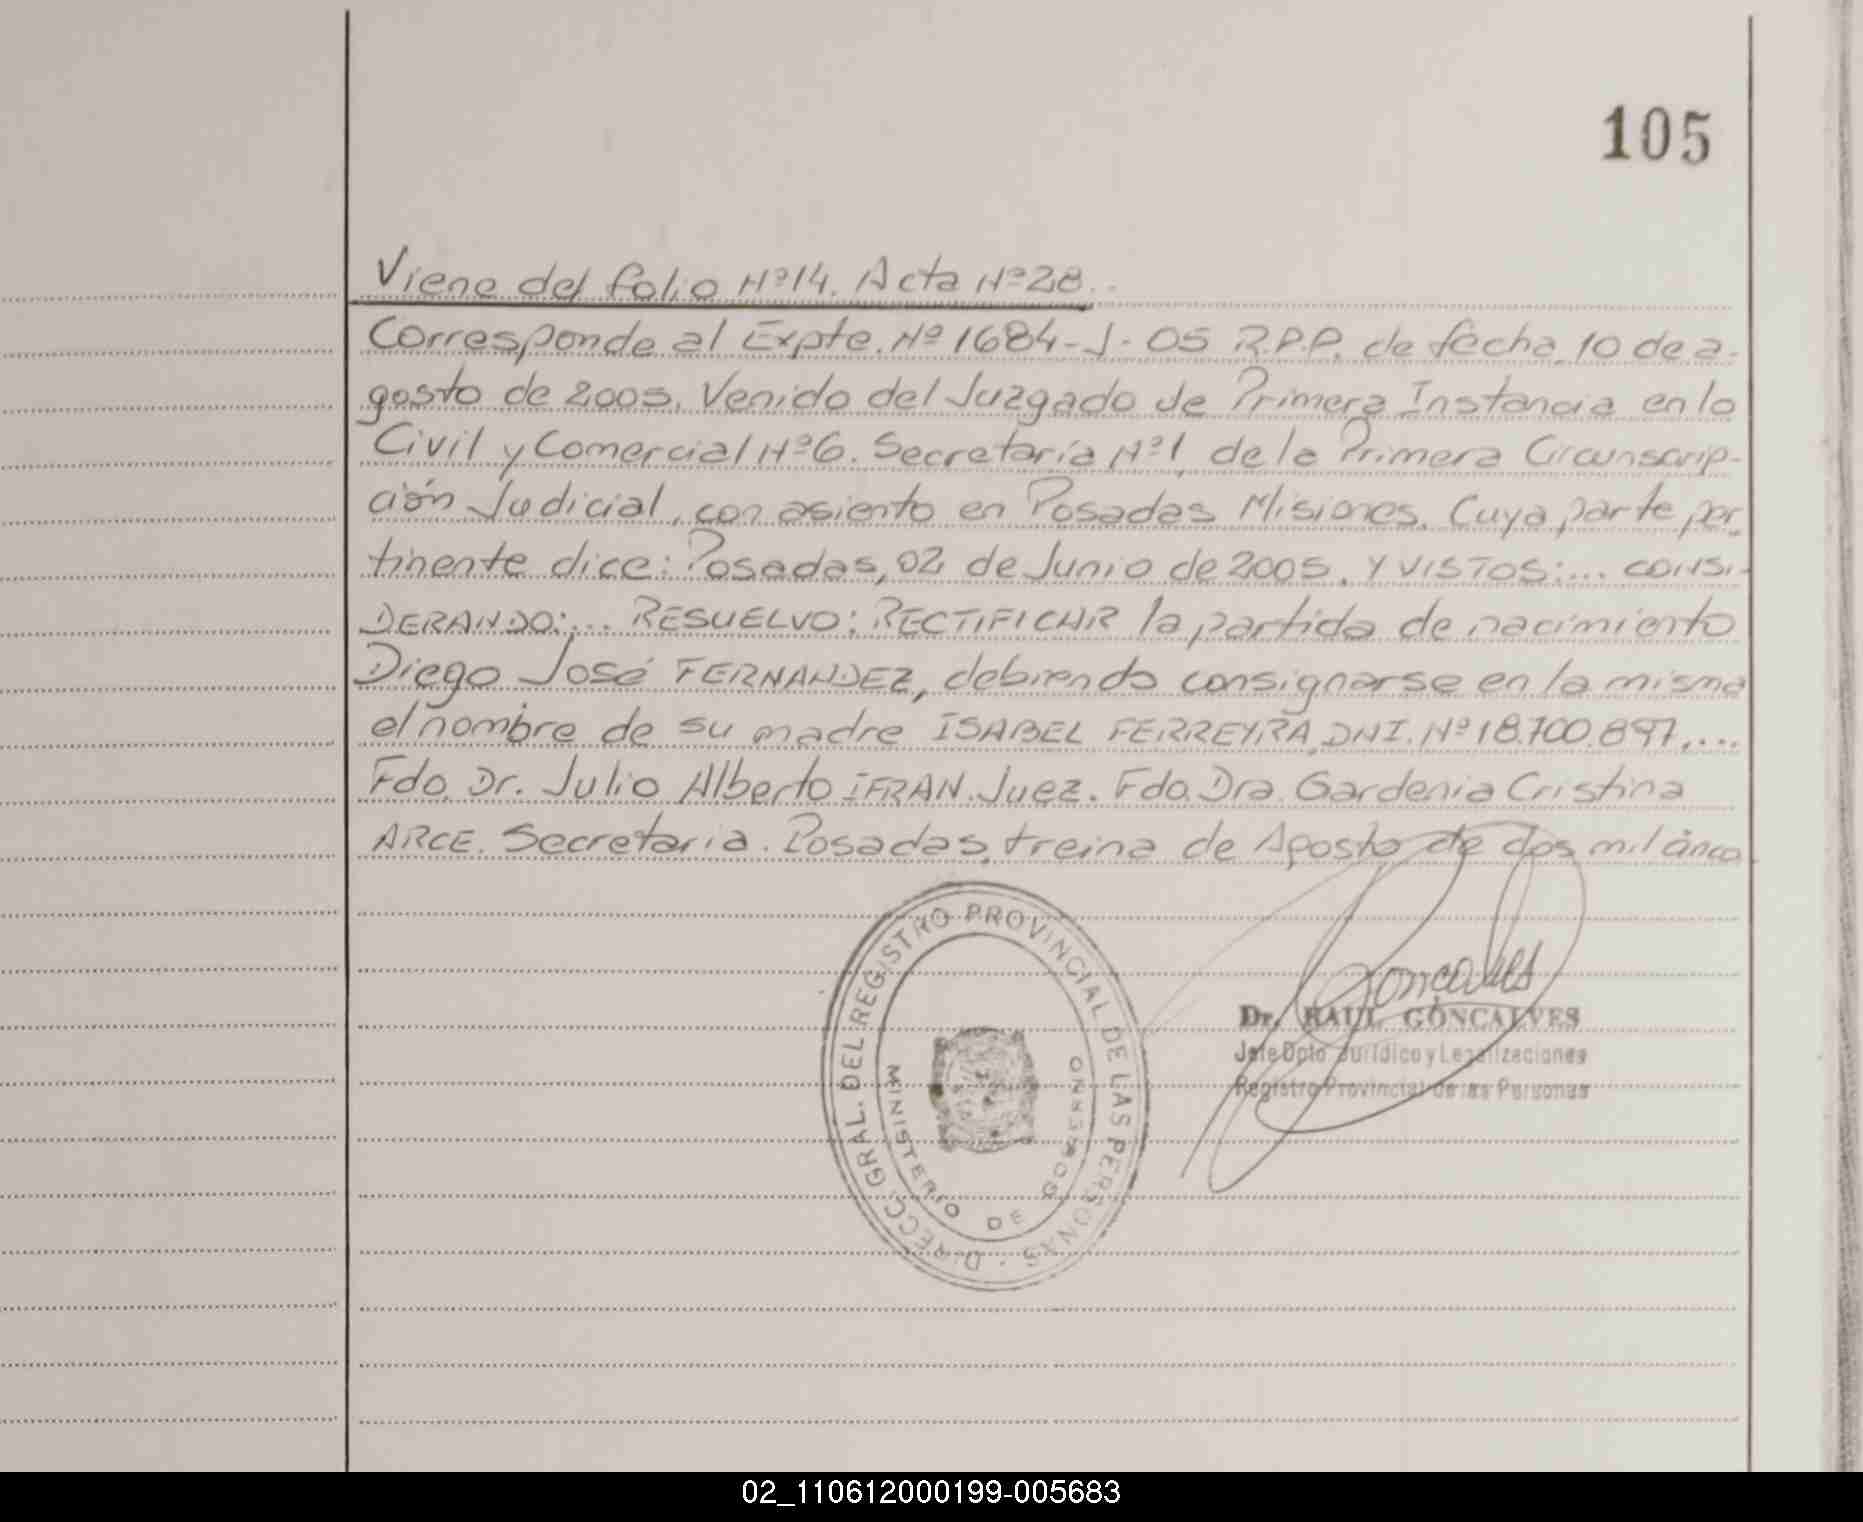 105
Viene del folio Nº14. Acta Nº28.
Corresponde al Expte. Nº 1684-J-05 R.P.P. de fecha 10 de a-
gosto de 2005. Venido del Juzgado de Primera Instancia en lo
Civil y Comercial Nº6. Secretaría Nº1, de la Primera Circunscrip-
ción Judicial, con asiento en Posadas Misiones. Cuya parte per-
tinente dice: Posadas, 02 de Junio de 2005. Y VISTOS:... CONSI-
DERANDO:... RESUELVO: RECTIFICAR la partida de nacimiento
Diego José FERNANDEZ, debiendo consignarse en la misma
el nombre de su madre ISABEL FERREYRA, DNI. Nº 18.700.897,....
Fdo. Dr. Julio Alberto IFRAN. Juez. Fdo. Dra. Gardenia Cristina
ARCE. Secretaria. Posadas, treina de Agosto de dos mil cinco.
DIRECC. GRAL. DEL REGISTRO PROVINCIAL DE LAS PERSONAS
MINISTERIO DE GOBIERNO
Goncalves
Dr. RAUL GONCALVES
Jefe Dpto. Jurídico y Legalizaciones
Registro Provincial de las Personas
02_110612000199-005683